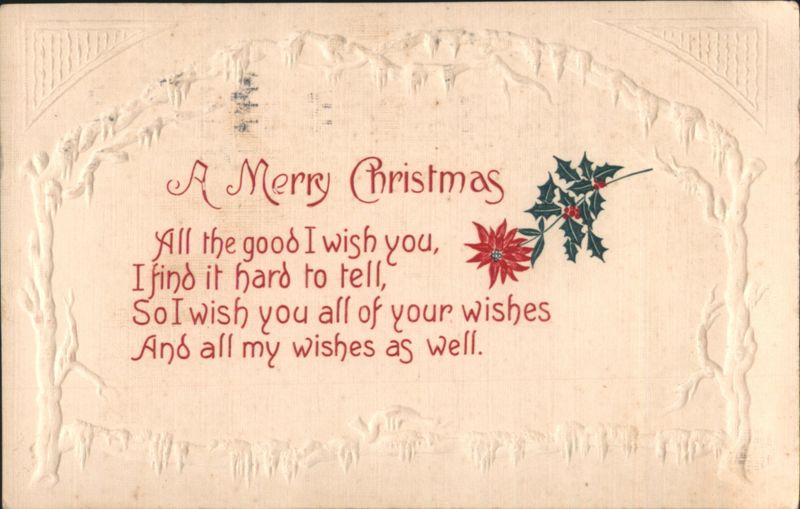 A Merry Christmas
All the good I wish you,
I find it hard to tell,
So I wish you all of your wishes
And all my wishes as well.